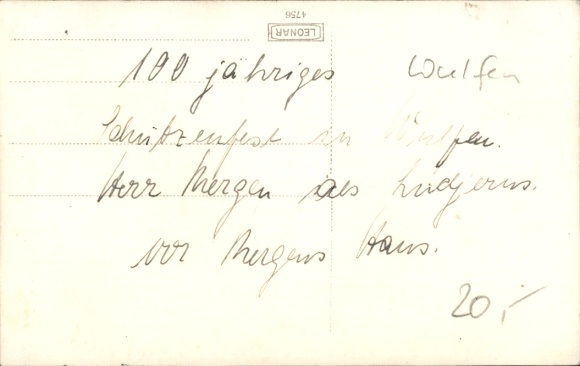 4756
LEONAR
100 jähriges Wulfen
Schützenfest in Wulfen.
Herr Mergen als
vor Mergens Haus.
20,-